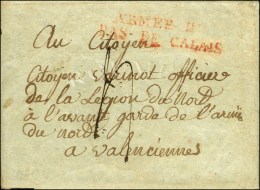 ARMÉE DU
PAS-DE CALAIS
Au Citoyen
Citoyen officier
de la Legion du Nord
à l'avant garde de l'armée
du nord
a valenciennes